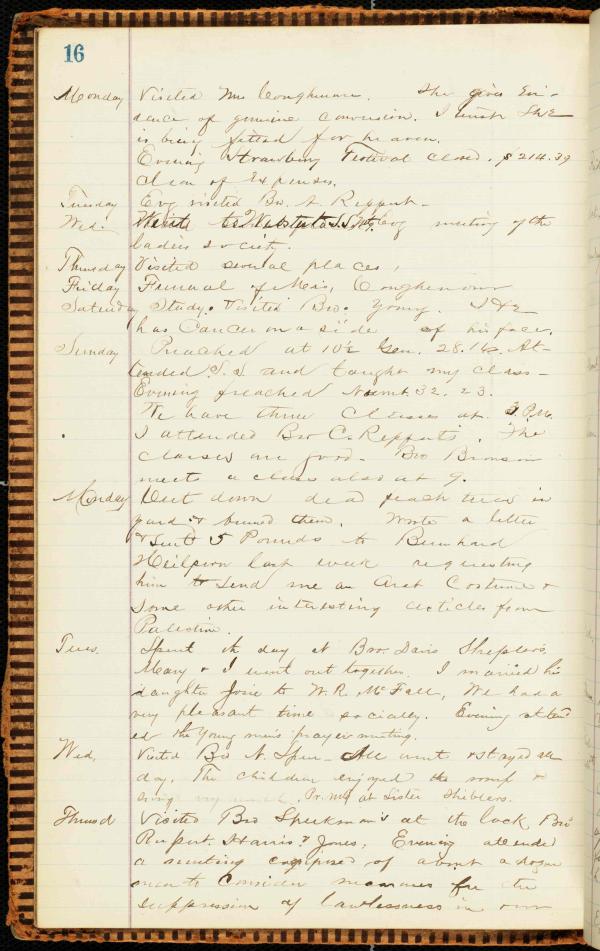 16
Monday Visited Mrs Coughenour. She gives Evi-
dence of genuine conversion. I think She
is being fitted for heaven.
Evening Strawberry Festival closed. $214.39
Clear of Expenses.
Tuesday Evg visited Bro. A. Reppert-
Wed. Went to Webster S.S. Evg meeting of the
ladies society.
Thursday Visited several places.
Friday Funeral of Mrs. Coughenour
Saturday Study. Visited Bro. Young. He
has Cancer on a side of his face.
Sunday Preached at 10½ Gen. 28.16. At-
tended S.S and taught my class-
Evening preached Numb. 32. 23.
We have three Classes at 3 P.M.
I attended Bro C. Repperts. The
classes are good- Bro Bronson
meets a class also at 9.
Monday Cut down dead peach trees in
yard & burned them. Wrote a letter
& sent 5 Pounds to Bernhard
Heilpern last week requesting
him to send me an Arab Costume &
some other interesting articles from
Palestine.
Tues. Spent the day at Bro. Davis Shepler's
Mary & I went out together. I married his
daughter Josie to W. R. McFall, We had a
very pleasant time socially. Evening attend
ed the Young men's prayer meeting.
Wed, Visited Bro N. Speer- All went & stayed all
day. The children enjoyed the romp &
swing very much. Pr. Mtg at Sister Shiblers.
Thursd Visited Bro Speekman's at the lock, Bro'
Rupert. Harris & Jones, Evening attended
a meeting composed of about a dozen
men to consider measures for the
suppression of lawlessness in our